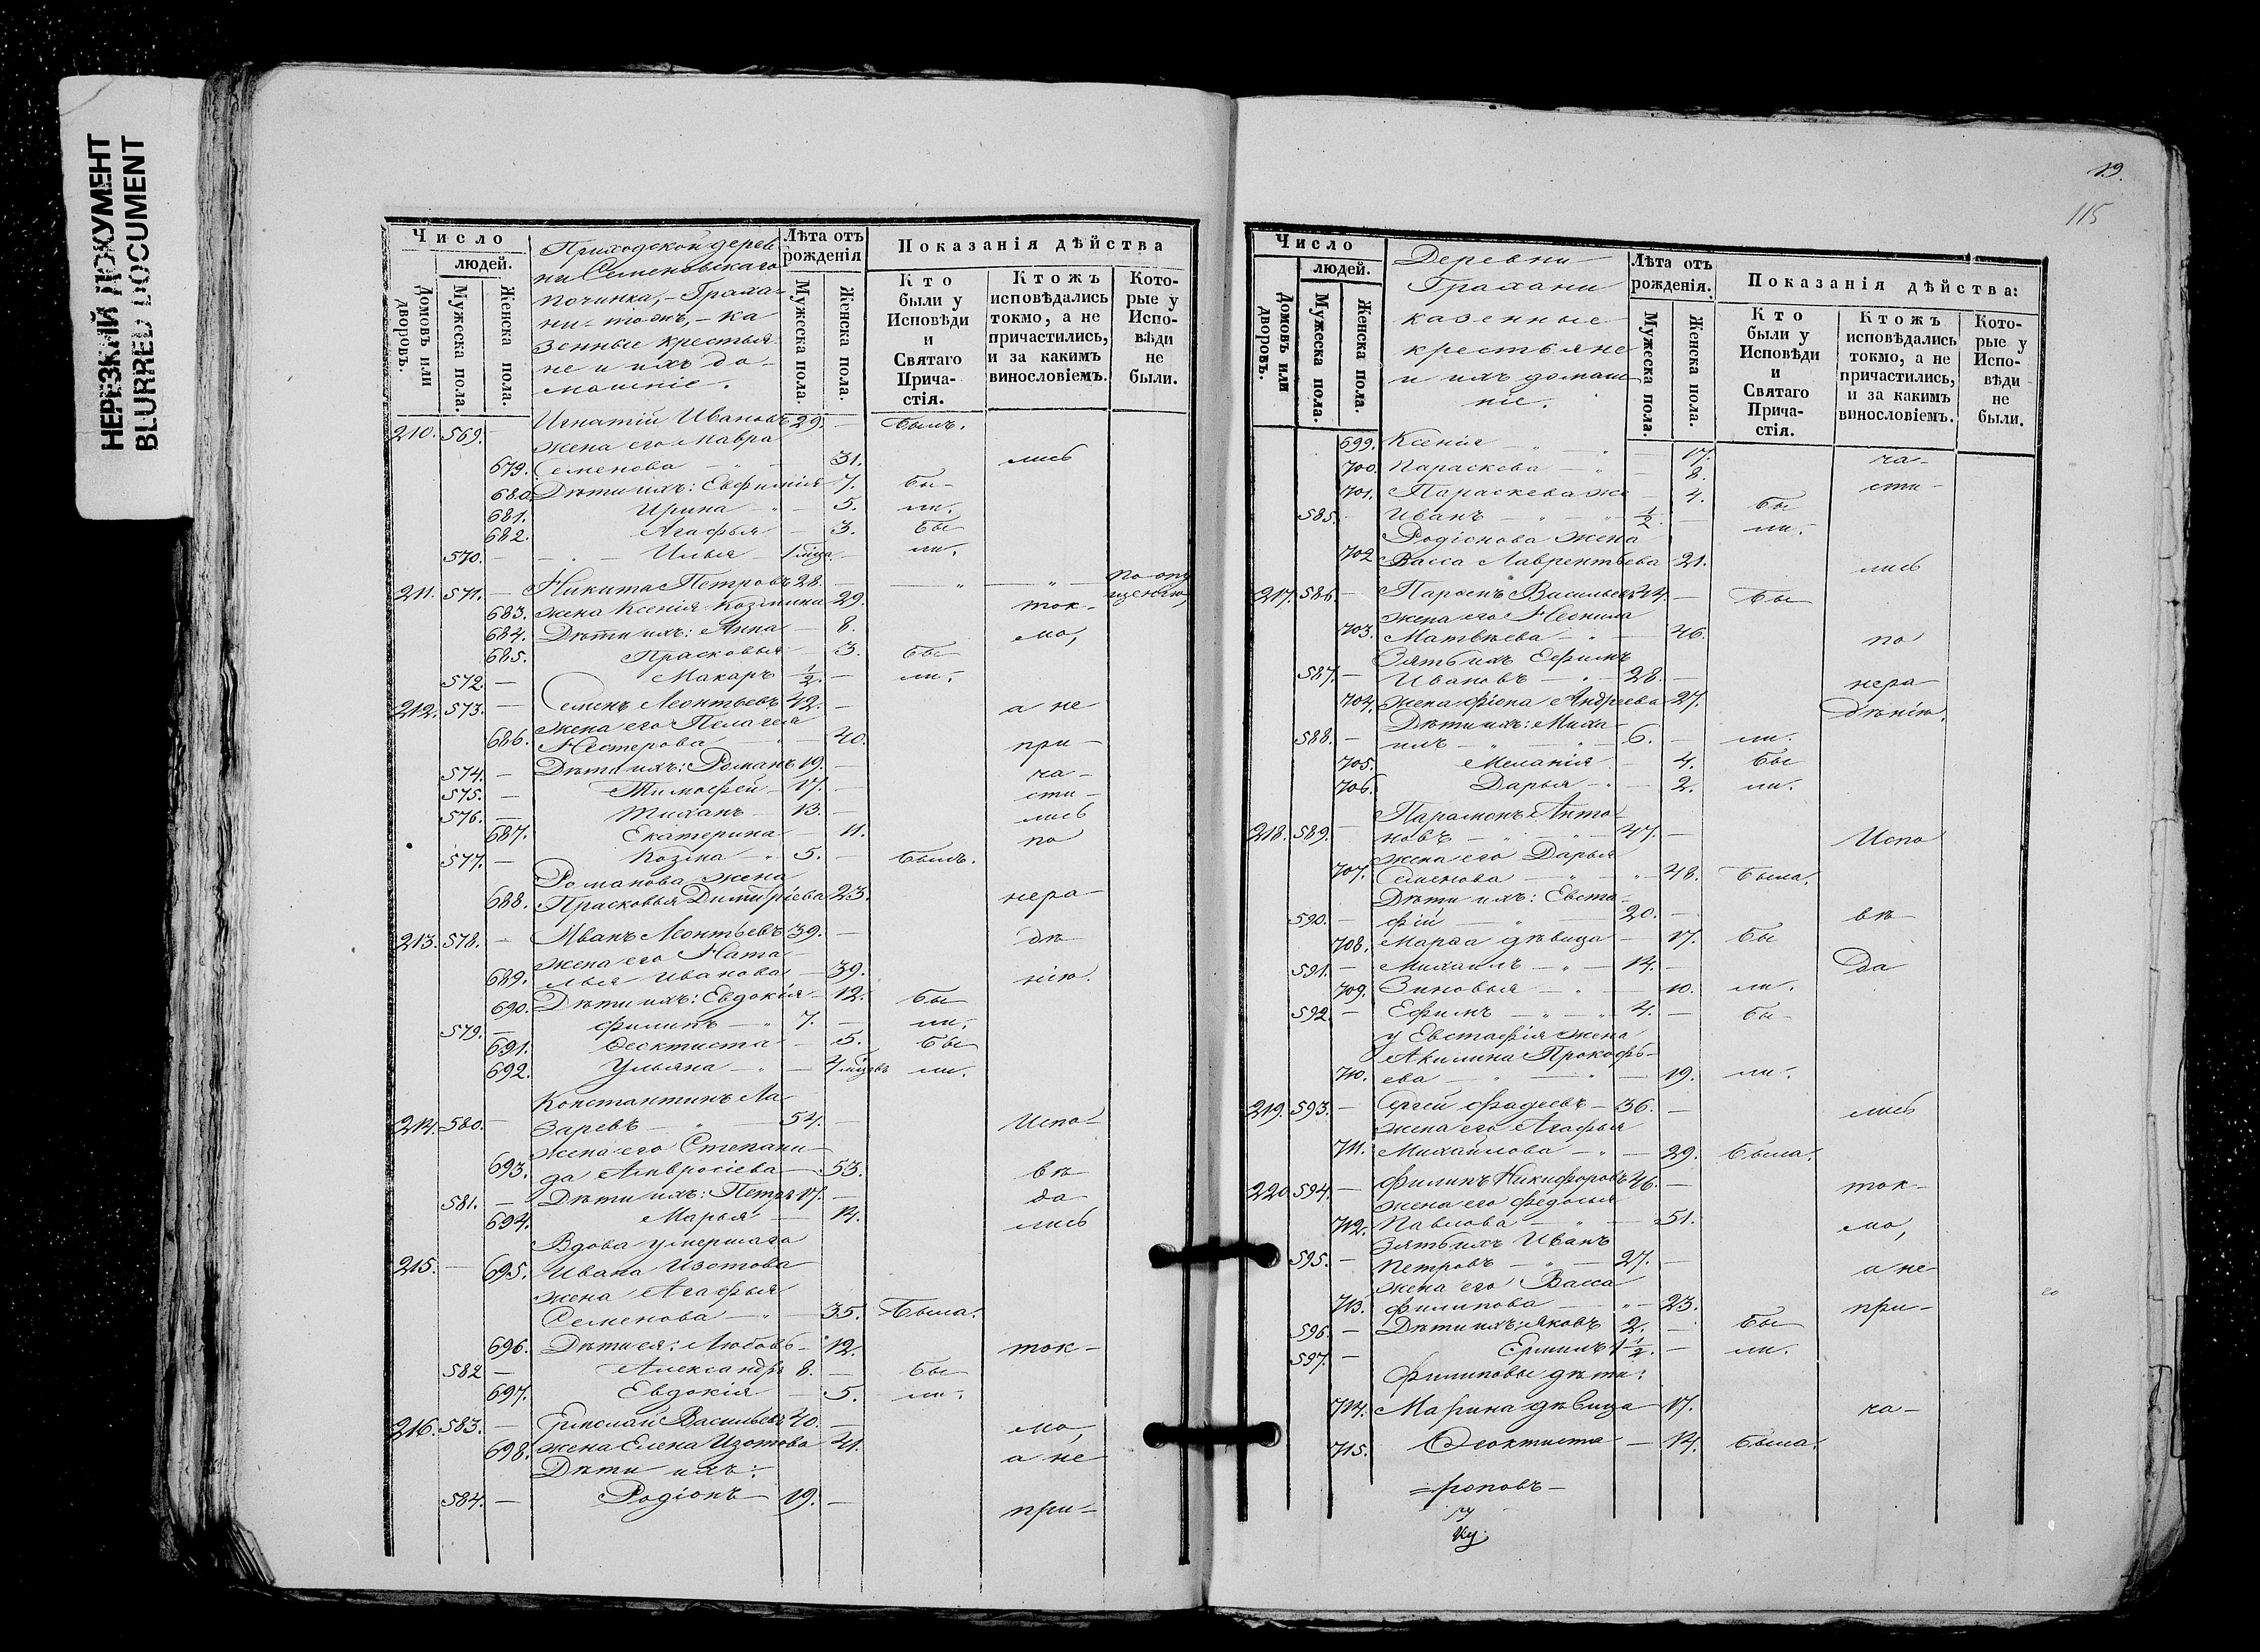 НЕРЕЗКИЙ ДОКУМЕНТ
BLURRED DOCUMENT
Число
людей.
Домовъ или дворовъ.
Мужеска пола.
Женска пола.
Приходской дерев
ни Семеновскаго
починка, Граха-
ни-тожъ, ка
зенные крестья
не и ихъ до-
машніе.
Лѣта отъ рожденія
Мужеска пола.
Женска пола.
Показанія дѣйства
Кто были у Исповѣди и Святаго Прича-стія.
Ктожъ исповѣдались токмо, а не причастились, и за какимъ винословіемъ.
Кото-рые у Испо-вѣди не были.
210. 569. — Игнатій Ивановъ 29. — былъ.
жена его Мавра
679. Семенова — „ — 31. лись
680. Дѣти ихъ: Евфимія 7. бы-
681. Ирина — „ — 5. ли.
682. Агафья — 3. бы
570. — Илья — 1 мца — ли.
211. 571. — Никита Петровъ 28. — „ — „ — по опу
щенію,
683. жена Ксенія Козмина 29. ток-
684. Дѣти ихъ: Анна — 8. мо,
685. Прасковья — 3. бы
572. — Макаръ 1/2. — ли.
212. 573. — Семенъ Леонтьевъ 42. — а не
жена его Пелагея
686. Нестерова — „ — 40. при-
574. — Дѣти ихъ: Романъ 19. — ча-
575. — Тимофей — 17. — сти-
576. — Тиханъ — 13. — лись
687. Екатерина — 11. по
577. — Козма — „ 5. — былъ.
Романова жена
688. Прасковья Димитріева 23. нера-
213. 578. — Иванъ Леонтьевъ 39. — дѣ
жена его Ната-
689. лья Иванова — 39. нію.
690. Дѣти ихъ: Евдокія — 12. бы
579. — Филипъ — „ 7. — ли.
691. Феоктиста — 5. бы
692. Ульяна — „ — 4 мцовъ ли.
Константинъ Ла-
214. 580. — заревъ — „ — 54. — Испо-
жена его Степани-
693. да Амвросіева — 53. вѣ
581. — Дѣти ихъ: Петръ 17. — да
694. Марья — 14. лись
Вдова умершаго
215. — 695. Ивана Изотова
жена Агафья
Семенова — „ — 35. была.
696. Дѣти ея: Любовь — 12. ток-
582 — Александръ 8. — бы
697. Евдокія — 5. ли.
216. 583. — Ермолай Васильевъ 40. — мо,
698. жена Елена Изотова 41. а не
Дѣти ихъ:
584. — Родіонъ — 19. — при-
19.
115
Число
людей.
Домовъ или дворовъ.
Мужеска пола.
Женска пола.
Деревни
Грахани
казенные
крестьяне
и ихъ домаш
ніе.
Лѣта отъ рожденія.
Мужеска пола.
Женска пола.
Показанія дѣйства:
Кто были у Исповѣди и Святаго Прича-стія.
Ктожъ исповѣдались токмо, а не причастились, и за какимъ винословіемъ.
Кото-рые у Испо-вѣди не были.
699. Ксенія — „ — 17. ча-
700. Параскева — „ — 8. сти-
701. Параскева же — 4. бы
585. — Иванъ — „ — 1/2. — ли.
Родіонова жена
702 Васса Лаврентьева 21. лись
217. 586. — Парфенъ Васильевъ 54. — бы
жена его Неонила
703. Матвѣева — „ — 46. по
Зять ихъ Ефимъ
587. — Ивановъ — „ — 28. — нера
704. жена Фіона Андреева 27. дѣнію.
Дѣти ихъ: Миха-
588. — илъ — „ — 6. — ли.
705. Меланія — 4. бы
706. Дарья — „ — 2. ли.
Парамонъ Анто-
218. 589. — новъ — „ — 47. — Испо
жена его Дарья
707. Семенова — „ — 48. была.
Дѣти ихъ: Евста-
590. — фій — „ — 20. — вѣ
708. Марѳа дѣвица — 17. бы
591. — Михаилъ — „ — 14. — да
709. Зиновья — „ — 10. ли.
592. — Ефимъ — „ — 4. — бы-
у Евстафія жена
Акилина Прокофь-
710. ева — „ — 19. ли.
219. 593. — Сергей Фадеевъ — 36. — лись
жена его Агафья
711. Михайлова — „ — 29. была.
220. 594. — Филипъ Никифоровъ 46. — ток-
жена его Федосья
712. Павлова — „ — 51. мо,
Зять ихъ Иванъ
595. — Петровъ — „ — 27. — а не
жена его Васса
713. Филипова — „ — 23. при-
596. — Дѣти ихъ: Яковъ 2. — бы
597. — Ермилъ — ли.
Филиповы дѣти:
714. Марина дѣвица — 17. ча-
715. Феоктиста — 14. была.
=роповъ—